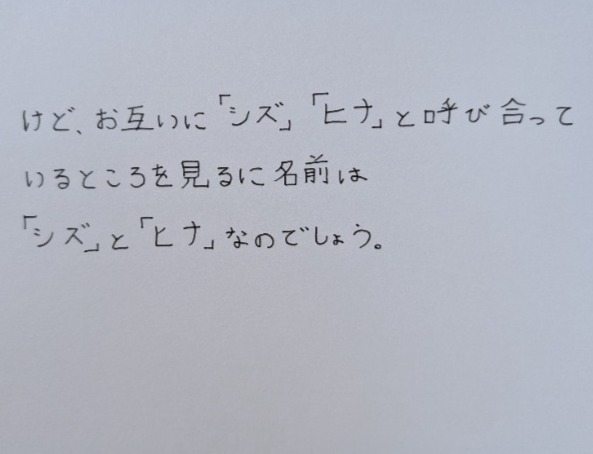 けど、お互いに「シズ」「ヒナ」と呼び合って
いるところを見るに名前は
「シズ」と「ヒナ」なのでしょう。